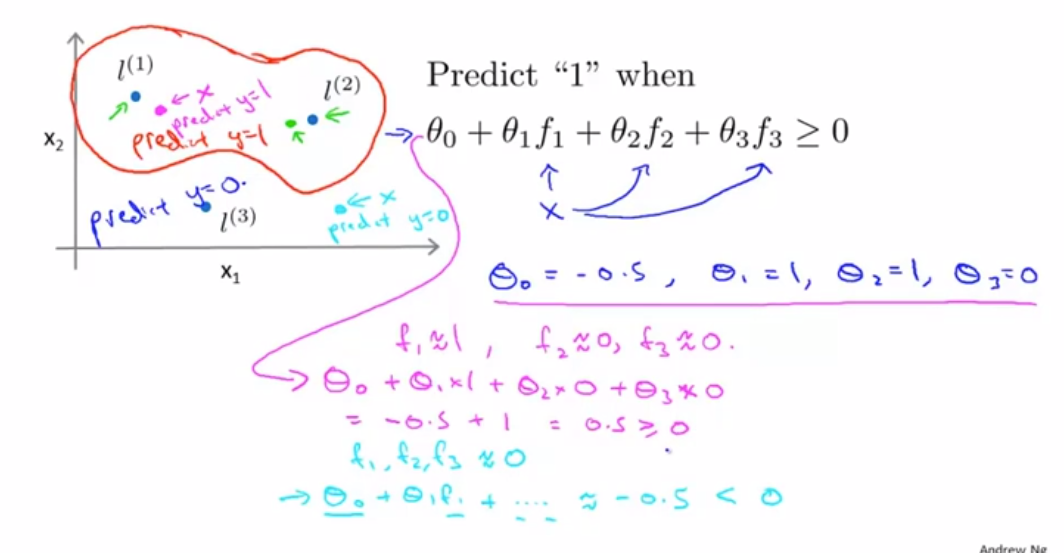 l⁽¹⁾
l⁽²⁾
← x
predict y=1
predict y=1
x₂
predict y=0.
l⁽³⁾
← x
predict y=0
x₁
Predict “1” when
θ₀ + θ₁f₁ + θ₂f₂ + θ₃f₃ ≥ 0
x
θ₀ = -0.5 , θ₁ = 1, θ₂=1, θ₃=0
f₁≈1 , f₂≈0, f₃≈0.
θ₀ + θ₁×1 + θ₂×0 + θ₃×0
= -0.5 + 1 = 0.5 ≥ 0
f₁, f₂, f₃ ≈ 0
→ θ₀ + θ₁f₁ + .... ≈ -0.5 < 0
Andrew Ng